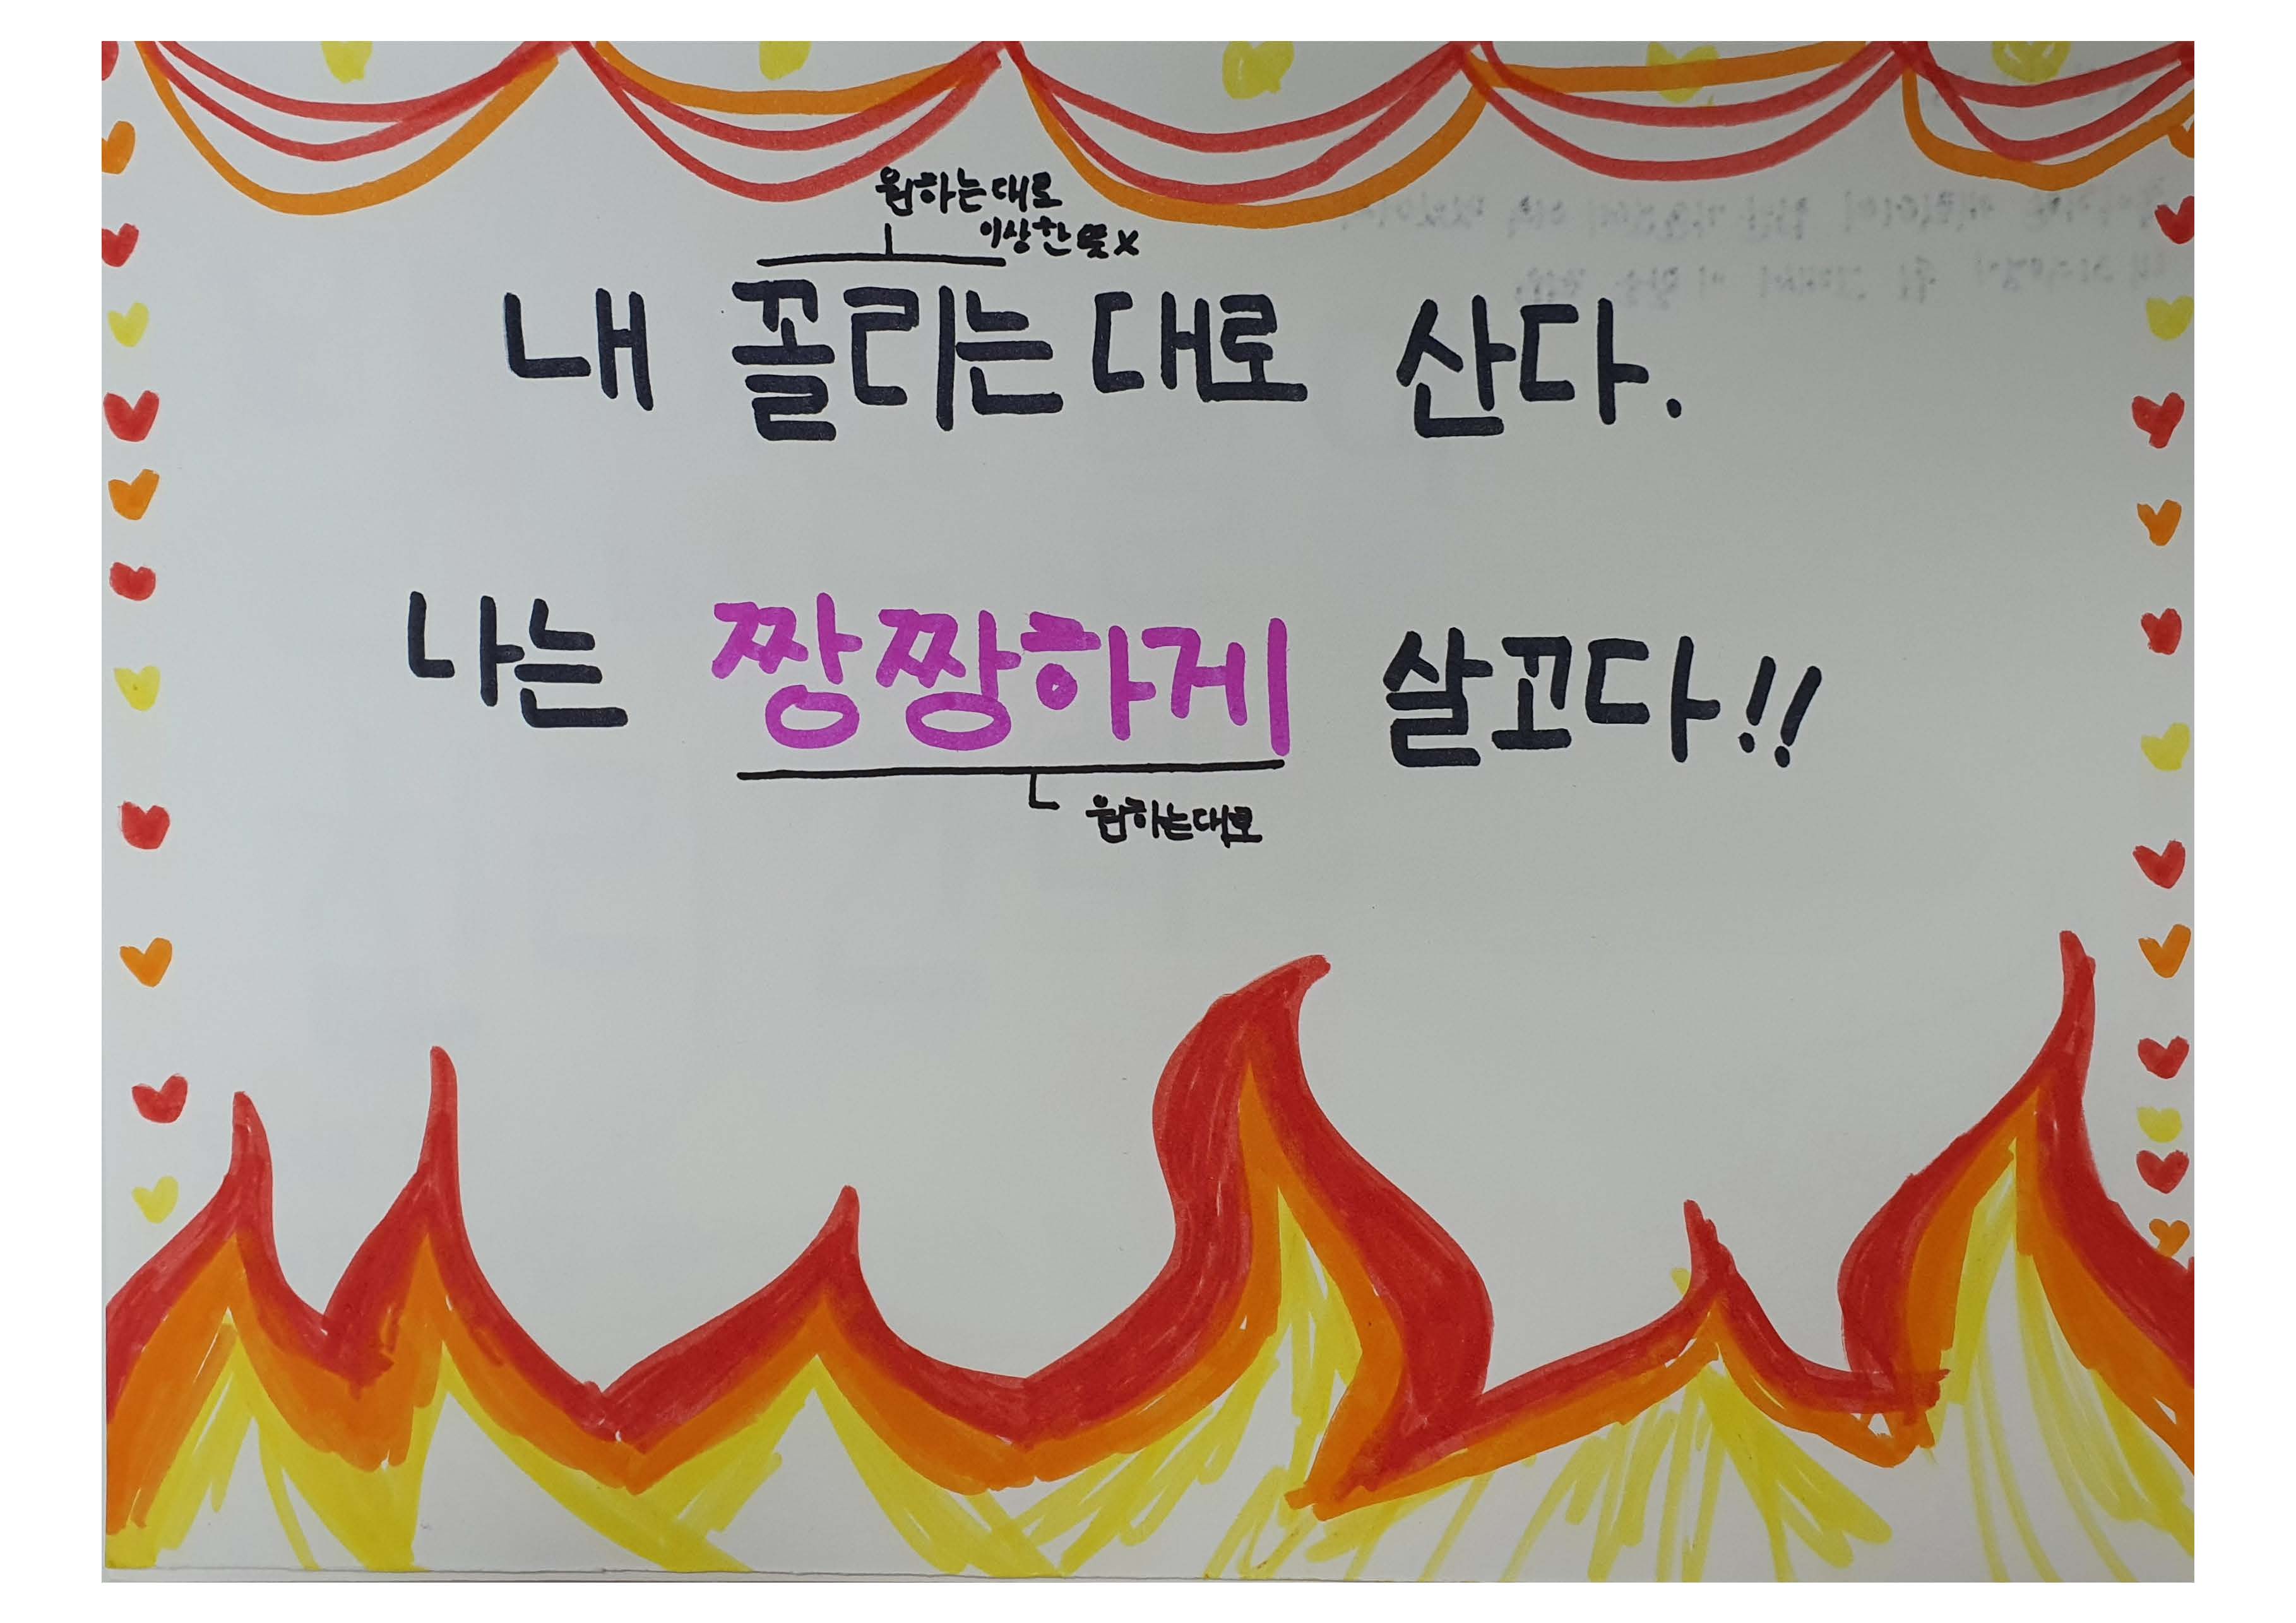 원하는대로
이상한 뜻 X
내 꼴리는대로 산다.
나는 짱짱하게 살꼬다!!
원하는대로